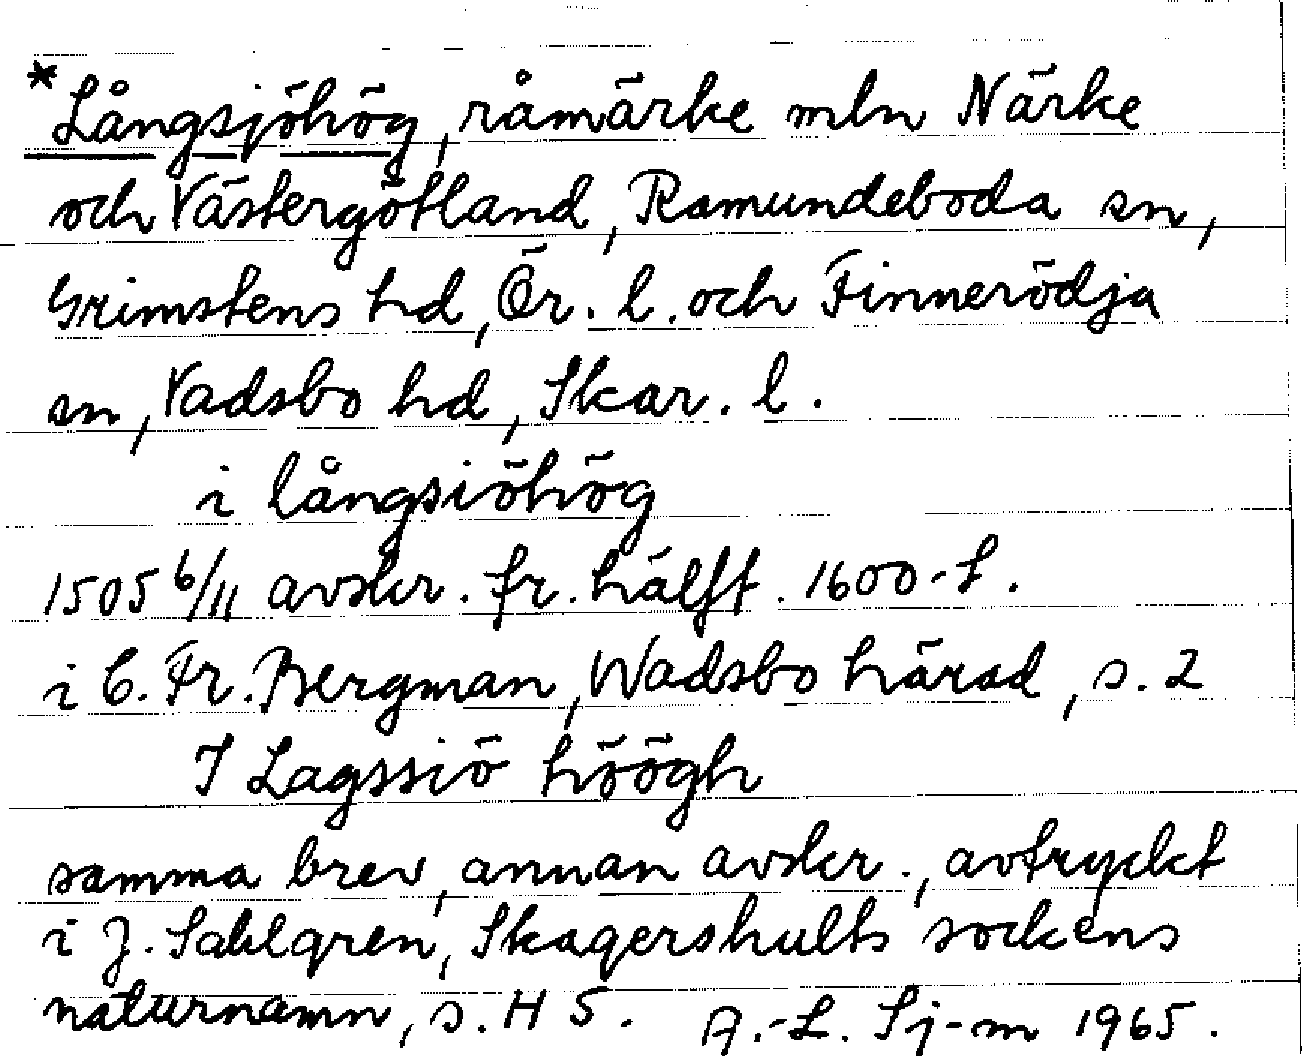 *Långsjöhög, råmärke mln Närke
och Västergötland, Ramundeboda sn,
Grimstens hd, Ör. l. och Finnerödja
sn, Vadsbo hd, Skar. l.
i långsiöhög
1505 6/11 avskr. fr. hälft. 1600-t.
i C. Fr. Bergman, Wadsbo härad, s. 2
I Lagssiö höögh
samma brev, annan avskr., avtryckt
i J. Sahlgren, Skagershults sockens
naturnamn, s. H 5. A.-L. Sj-m 1965.